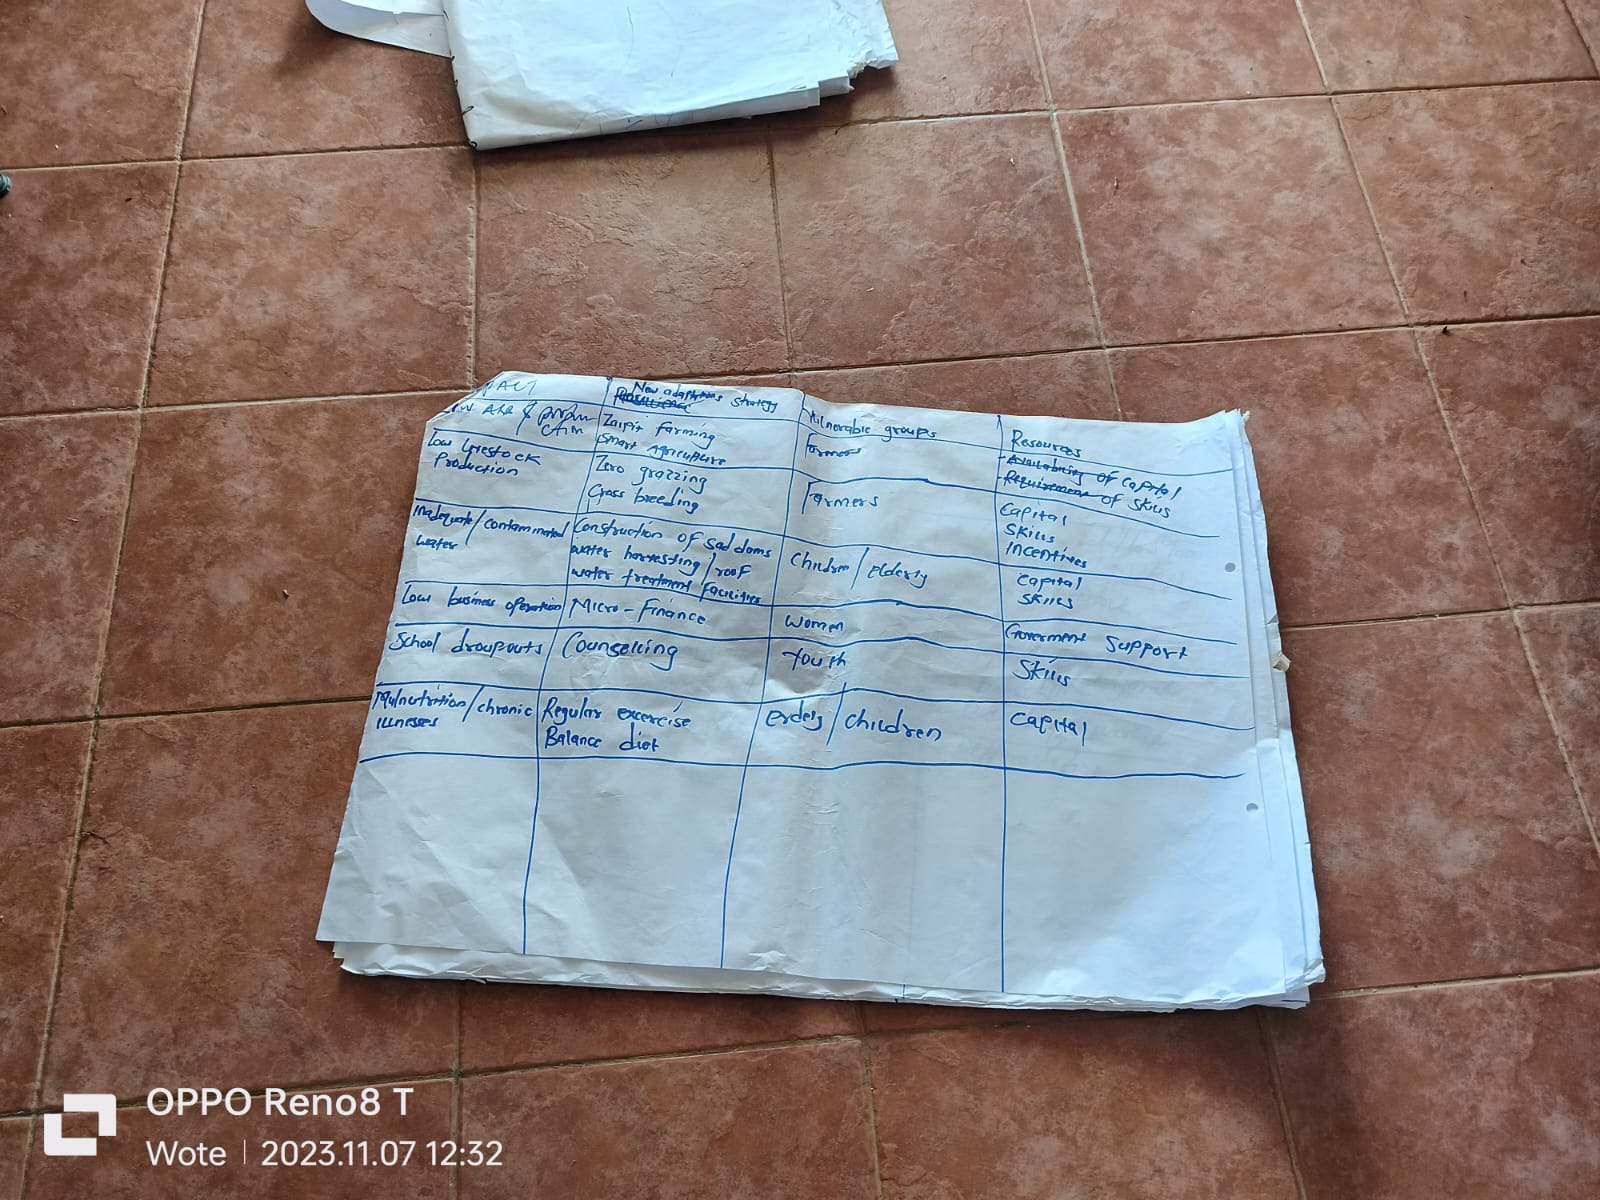 New adaptations strategy
Vulnerable groups
Resources
Zaipit farming
Smart agriculture
Farmers
Availability of Capital
Requirement of Skills
Low livestock
Production
Zero grazzing
Cross breeding
Farmers
Capital
Skills
Incentives
Inadequate/contaminated
water
Construction of sad dams
water harvesting/roof
water treatment facilities
Children/elderly
Capital
Skills
Low business operation
Micro-finance
women
Goverment Support
School droupouts
Counselling
Youth
Skills
Malnutrition/chronic
illnesses
Regular excercise
Balance diet
Erdely/children
Capital
OPPO Reno8 T
Wote | 2023.11.07 12:32